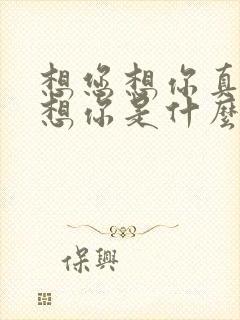 想您想你真
想你是什麼
保興